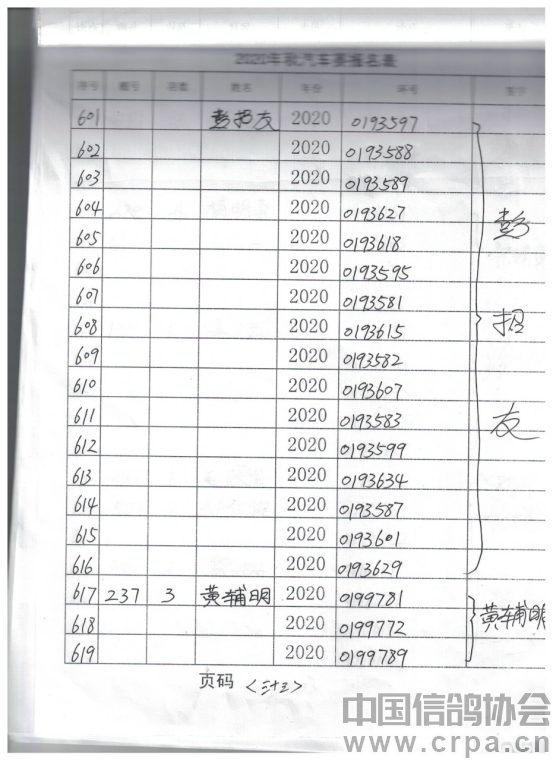 2020年秋汽车赛报名表
序号 棚号 羽数 姓名 年份 环号 签字
601 彭招友 2020 0193597
602 2020 0193588
603 2020 0193589
604 2020 0193627 彭
605 2020 0193618
606 2020 0193595
607 2020 0193581
608 2020 0193615 招
609 2020 0193582
610 2020 0193607
611 2020 0193583 友
612 2020 0193599
613 2020 0193634
614 2020 0193587
615 2020 0193601
616 2020 0193629
617 237 3 黄辅明 2020 0199781
618 2020 0199772 黄辅明
619 2020 0199789
页码 <三十三>
中国信鸽协会
www.crpa.cn